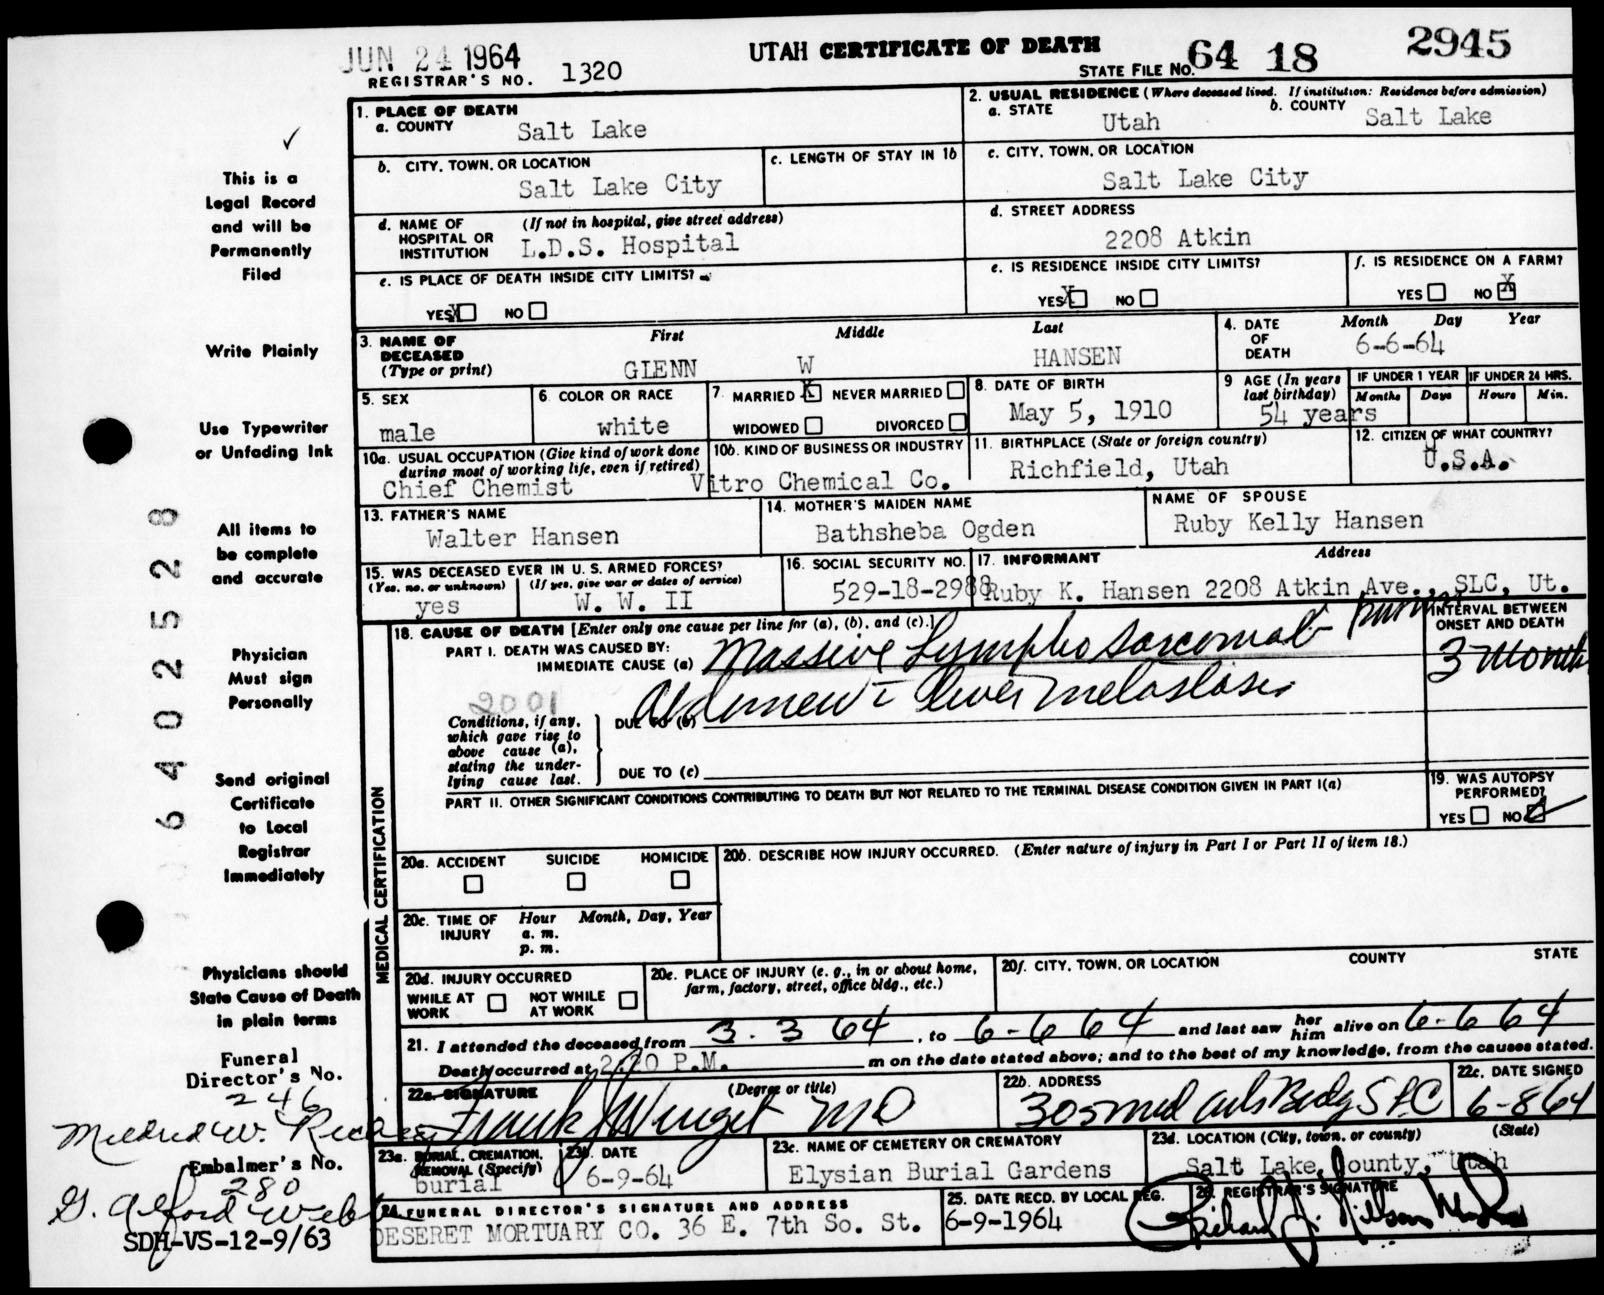 JUN 24 1964
UTAH CERTIFICATE OF DEATH
REGISTRAR'S NO. 1320
STATE FILE NO. 64 18 2945
1. PLACE OF DEATH
a. COUNTY Salt Lake
2. USUAL RESIDENCE (Where deceased lived. If institution: Residence before admission)
a. STATE Utah b. COUNTY Salt Lake
b. CITY, TOWN, OR LOCATION Salt Lake City
c. LENGTH OF STAY IN 1b
c. CITY, TOWN, OR LOCATION
Salt Lake City
d. NAME OF HOSPITAL OR INSTITUTION (If not in hospital, give street address)
L.D.S. Hospital
d. STREET ADDRESS
2208 Atkin
e. IS PLACE OF DEATH INSIDE CITY LIMITS?
YES X NO
e. IS RESIDENCE INSIDE CITY LIMITS?
YES X NO
f. IS RESIDENCE ON A FARM?
YES NO X
3. NAME OF DECEASED (Type or print)
First Middle Last
GLENN W HANSEN
4. DATE OF DEATH Month Day Year
6-6-64
5. SEX male
6. COLOR OR RACE white
7. MARRIED X NEVER MARRIED
WIDOWED DIVORCED
8. DATE OF BIRTH
May 5, 1910
9 AGE (In years last birthday)
54 years
IF UNDER 1 YEAR Months Days
IF UNDER 24 HRS. Hours Min.
10a. USUAL OCCUPATION (Give kind of work done during most of working life, even if retired)
Chief Chemist
10b. KIND OF BUSINESS OR INDUSTRY
Vitro Chemical Co.
11. BIRTHPLACE (State or foreign country)
Richfield, Utah
12. CITIZEN OF WHAT COUNTRY?
U.S.A.
13. FATHER'S NAME
Walter Hansen
14. MOTHER'S MAIDEN NAME
Bathsheba Ogden
NAME OF SPOUSE
Ruby Kelly Hansen
15. WAS DECEASED EVER IN U. S. ARMED FORCES?
(Yes, no, or unknown) (If yes, give war or dates of service)
yes W. W. II
16. SOCIAL SECURITY NO.
529-18-2988
17. INFORMANT Address
Ruby K. Hansen 2208 Atkin Ave., SLC, Ut.
18. CAUSE OF DEATH [Enter only one cause per line for (a), (b), and (c).]
INTERVAL BETWEEN ONSET AND DEATH
PART I. DEATH WAS CAUSED BY:
IMMEDIATE CAUSE (a) Massive Lympho Sarcoma
3 Month
2001
Conditions, if any, which gave rise to above cause (a), stating the underlying cause last.
DUE TO (b) Abdomen Liver Metastases
DUE TO (c)
PART II. OTHER SIGNIFICANT CONDITIONS CONTRIBUTING TO DEATH BUT NOT RELATED TO THE TERMINAL DISEASE CONDITION GIVEN IN PART I(a)
19. WAS AUTOPSY PERFORMED?
YES NO
MEDICAL CERTIFICATION
20a. ACCIDENT SUICIDE HOMICIDE
20b. DESCRIBE HOW INJURY OCCURRED. (Enter nature of injury in Part I or Part II of item 18.)
20c. TIME OF INJURY Hour Month, Day, Year
a. m.
p. m.
20d. INJURY OCCURRED
WHILE AT WORK NOT WHILE AT WORK
20e. PLACE OF INJURY (e. g., in or about home, farm, factory, street, office bldg., etc.)
20f. CITY, TOWN, OR LOCATION COUNTY STATE
21. I attended the deceased from 3-3 64, to 6-6 64 and last saw her him alive on 6-6 64
Death occurred at 2:20 P.M. m on the date stated above; and to the best of my knowledge, from the causes stated.
22a. SIGNATURE (Degree or title)
Frank J Winget MD
22b. ADDRESS
305 Med Arts Bldg SLC
22c. DATE SIGNED
6-8 64
23a. BURIAL, CREMATION, REMOVAL (Specify)
burial
23b. DATE
6-9-64
23c. NAME OF CEMETERY OR CREMATORY
Elysian Burial Gardens
23d. LOCATION (City, town, or county) (State)
Salt Lake County, Utah
24. FUNERAL DIRECTOR'S SIGNATURE AND ADDRESS
DESERET MORTUARY CO. 36 E. 7th So. St.
25. DATE RECD. BY LOCAL REG.
6-9-1964
26. REGISTRAR'S SIGNATURE
This is a
Legal Record
and will be
Permanently
Filed
Write Plainly
Use Typewriter
or Unfading Ink
All items to
be complete
and accurate
Physician
Must sign
Personally
Send original
Certificate
to Local
Registrar
Immediately
Physicians should
State Cause of Death
in plain terms
Funeral
Director's No.
246
Mildred W.
Embalmer's No.
280
G. Alford Webb
SDH-VS-12-9/63
6402528